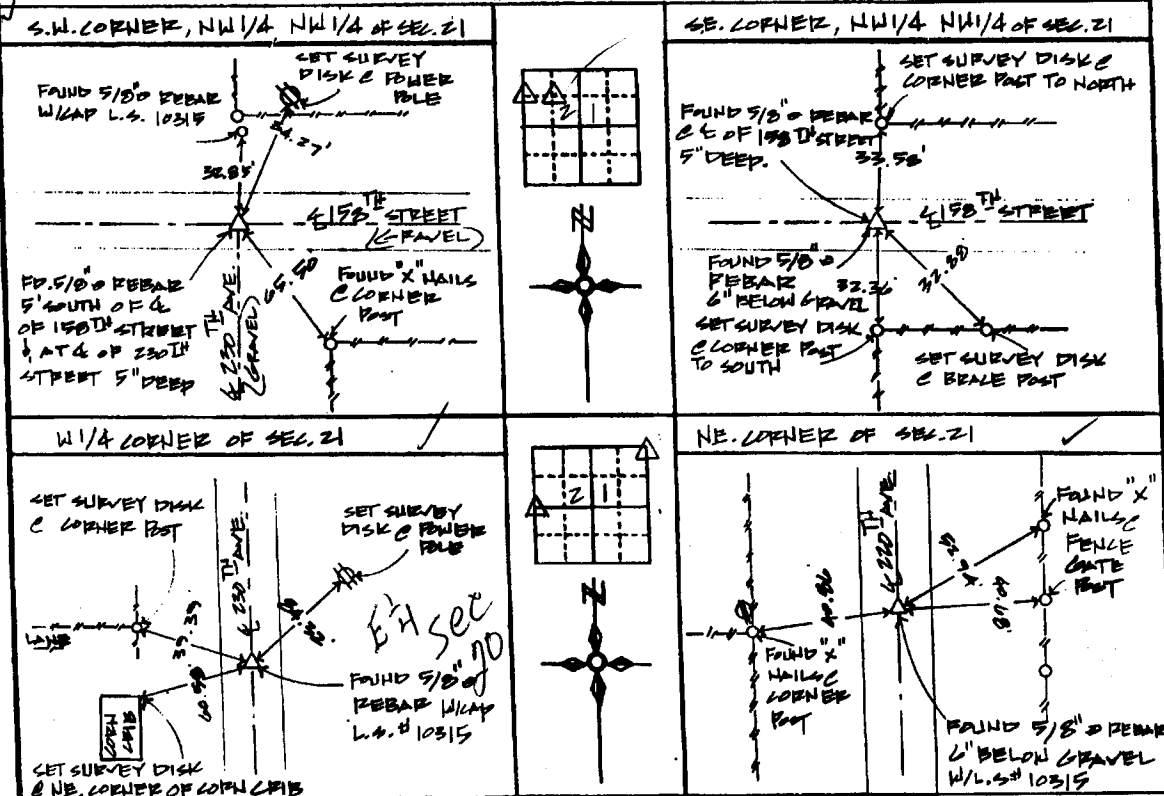 S.W. CORNER, NW 1/4 NW 1/4 OF SEC. 21
FOUND 5/8"Ø REBAR
W/CAP L.S. 10315
SET SURVEY
DISK @ POWER
POLE
34.27'
32.85'
℄ 158TH STREET
(GRAVEL)
FD. 5/8"Ø REBAR
5' SOUTH OF ℄
OF 158TH STREET
& AT ℄ OF 230TH
STREET 5" DEEP
℄ 230TH AVE.
(GRAVEL)
65.50
FOUND "X" NAILS
@ CORNER
POST
2 1
N
S.E. CORNER, NW 1/4 NW 1/4 OF SEC. 21
SET SURVEY DISK @
CORNER POST TO NORTH
FOUND 5/8"Ø REBAR
@ ℄ OF 158TH STREET
5" DEEP.
33.58'
℄ 158TH STREET
FOUND 5/8"Ø
REBAR
6" BELOW GRAVEL
32.36'
SET SURVEY DISK
@ CORNER POST
TO SOUTH
SET SURVEY DISK
@ BRACE POST
W 1/4 CORNER OF SEC. 21
SET SURVEY DISK
@ CORNER POST
℄ 230TH AVE.
SET SURVEY
DISK @ POWER
POLE
LANE
39.39
60.58'
E 1/4 sec
20
FOUND 5/8"Ø
REBAR W/CAP
L.S.# 10315
CORN
CRIB
SET SURVEY DISK
@ NE. CORNER OF CORN CRIB
2 1
N
NE. CORNER OF SEC. 21
℄ 220TH AVE.
FOUND "X"
NAILS @
FENCE
GATE
POST
40.86
40.68'
FOUND "X"
NAILS @
CORNER
POST
FOUND 5/8"Ø REBAR
6" BELOW GRAVEL
W/L.S.# 10315